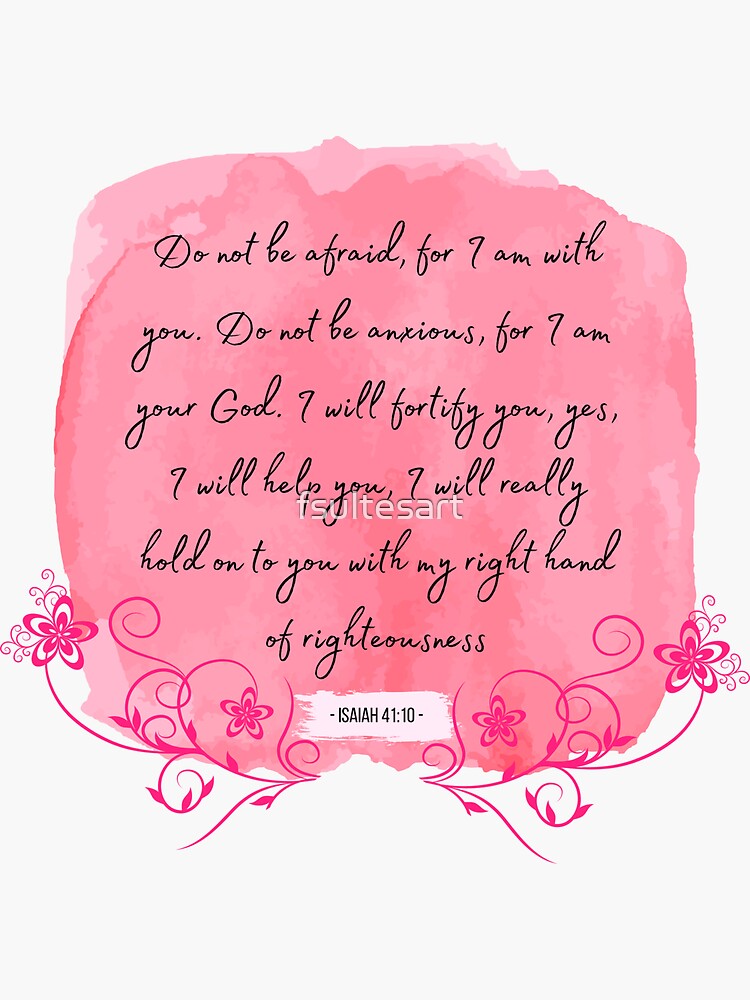 Do not be afraid, for I am with
you. Do not be anxious, for I am
your God. I will fortify you, yes,
I will help you, I will really
fsultesart
hold on to you with my right hand
of righteousness
- ISAIAH 41:10 -